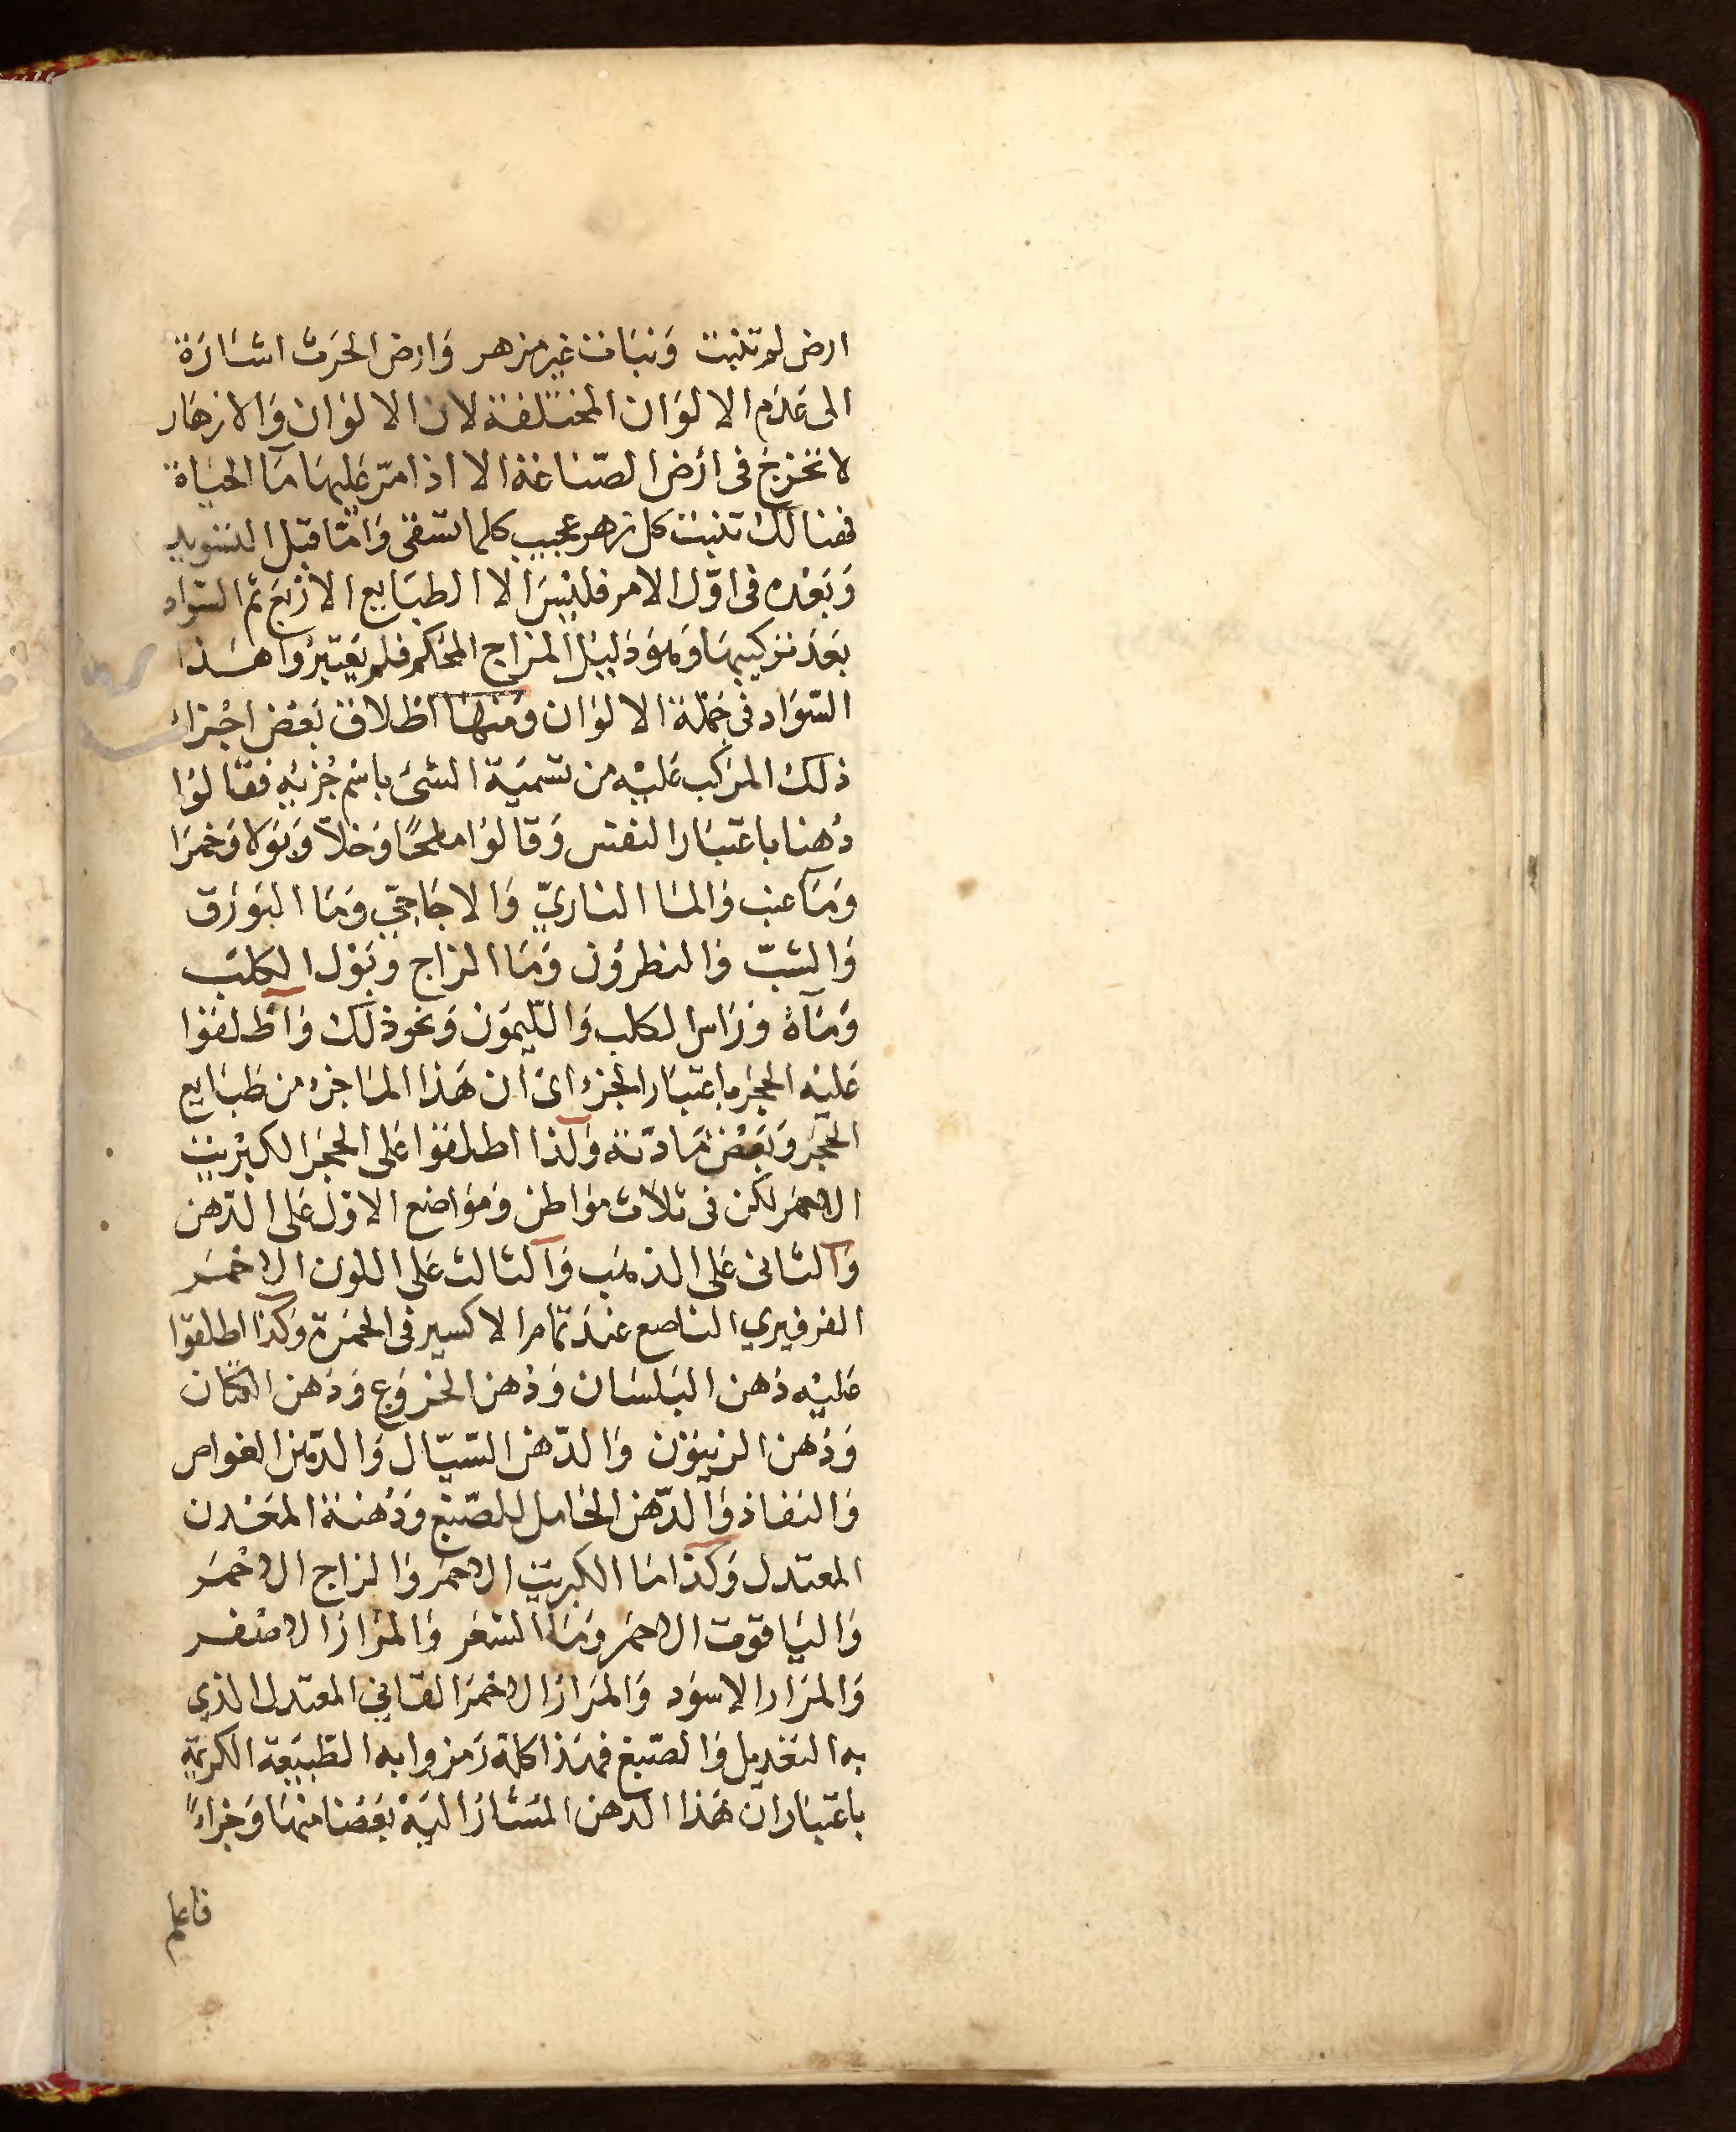 ارض لم تنبت ونبات غير مزهر وارض الحرث اشارة
الى عدم الالوان المختلفة لان الالوان والازهار
لا تخرج فى ارض الصناعة الا اذا مر عليها ما الحياة
فهنالك تنبت كل زهر عجيب كلما تسقى واما قبل التسويد
وبعده فى اول الامر فليس الا الطبايع الاربع ثم السواد
بعد تركيبها وهو دليل المزاج المحكم فلم يعتبروا هذا
السواد فى جملة الالوان ومنها اطلاق بعض اجزاء
ذلك المركب عليه من تسمية الشئ باسم جزئه فقالوا
دهنا باعتبار النفس وقالوا ملحا وخلا وبولا وخمرا
وما عنب والما النارى والاجاجى وما البورق
والشب والنطرون وما الزاج وبول الكلب
وماه وراس الكلب والليمون ونحو ذلك واطلقوا
عليه الحجر باعتبار الجزء اى ان هذا الما جزء من طبايع
الحجر وبعض مادته ولذا اطلقوا على الحجر الكبريت
الاحمر لكن فى ثلاث مواطن ومواضع الاول على الدهن
والثانى على الذهب والثالث على اللون الاحمر
الفرفيري الناصع عند تمام الاكسير فى الحمرة وكذا اطلقوا
عليه دهن البلسان ودهن الخروع ودهن الكتان
ودهن الزيتون والدهن السيال والدهن الغواص
والنفاذ والدهن الحامل للصبغ ودهنة المعدن
المعتدل وكذا ما الكبريت الاحمر والزاج الاحمر
والياقوت الاحمر وما الشعر والمرار الاصفر
والمرار الاسود والمرار الاحمر القانى المعتدل الذي
به التعديل والصبغ فهذا كله رمزوا به الطبيعة الكريمة
باعتبار ان هذا الدهن المشار اليه بعضا منها وجزاء
فاعلم